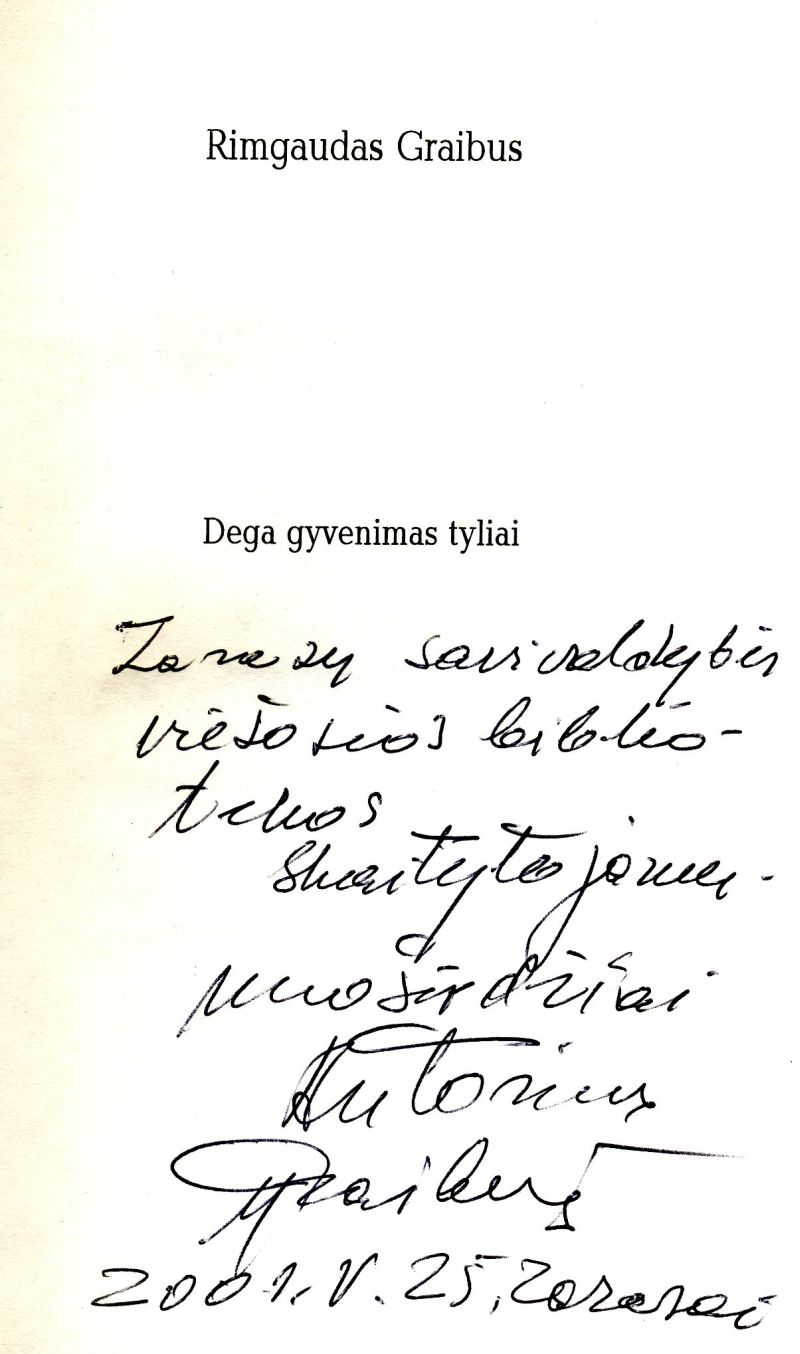 Rimgaudas Graibus
Dega gyvenimas tyliai
Zarasų savivaldybės
viešosios biblio-
tekos
skaitytojams -
nuoširdžiai
Autorius
Graibus
2001.V.25, Zarasai